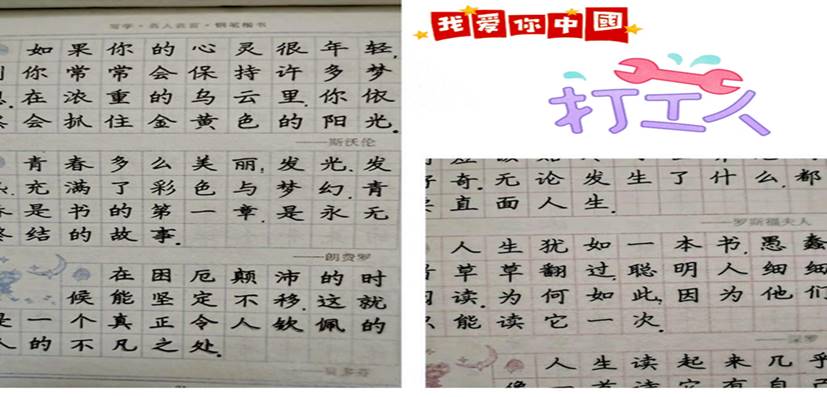 写字·名人名言·钢笔楷书
如果你的心灵很年轻,
你常常会保持许多梦
在浓重的乌云里,你依
会抓住金黄色的阳光。
——斯沃伦
青春多么美丽,发光,发
充满了彩色与梦幻,青
是书的第一章,是永无
结的故事。
——朗费罗
在困厄颠沛的时
候能坚定不移,这就
是一个真正令人钦佩的
人的不凡之处。
——贝多芬
我爱你中國
打工人
奇,无论发生了什么,都
直面人生。
——罗斯福夫人
人生犹如一本书,愚蠢
草草翻过,聪明人细细
读,为何如此,因为他们
能读它一次。
人生读起来几乎